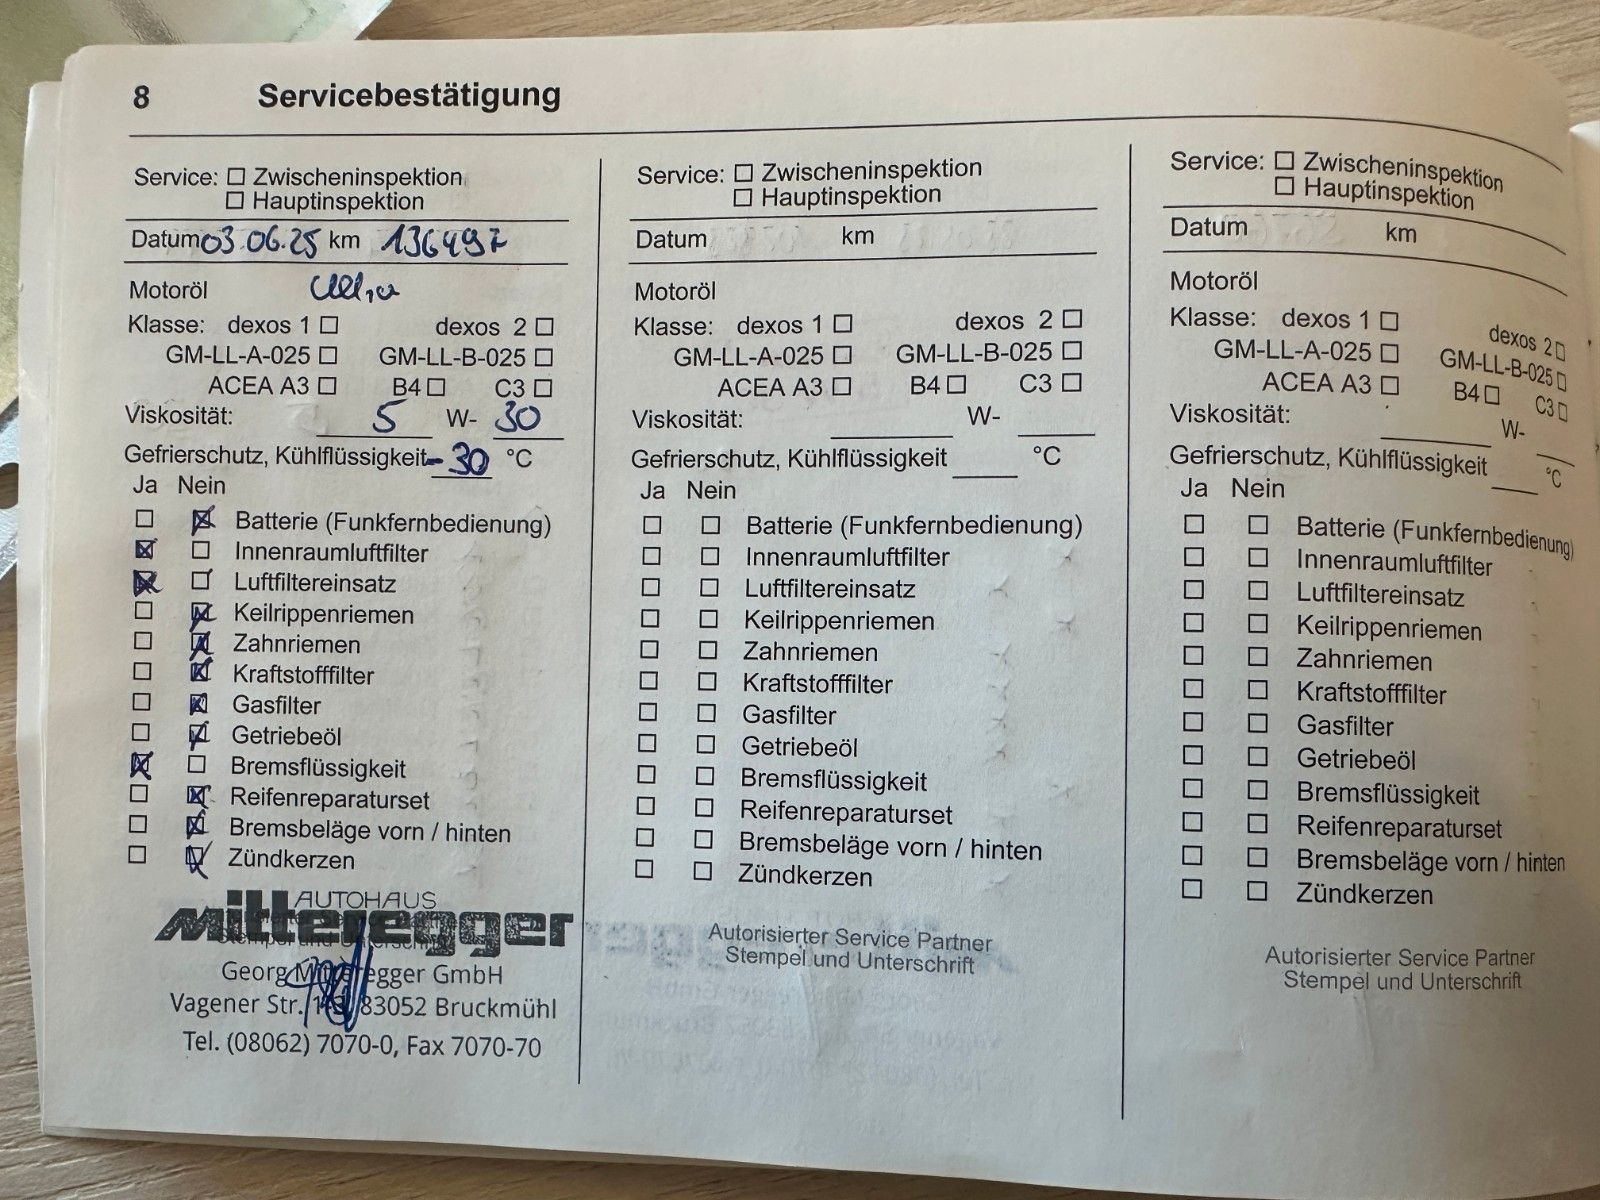 8 Servicebestätigung
Service: ☐ Zwischeninspektion
☐ Hauptinspektion
Datum 03.06.25 km 136497
Motoröl
Klasse: dexos 1 ☐ dexos 2 ☐
GM-LL-A-025 ☐ GM-LL-B-025 ☐
ACEA A3 ☐ B4 ☐ C3 ☐
Viskosität: 5 W- 30
Gefrierschutz, Kühlflüssigkeit -30 °C
Ja Nein
☐ ☒ Batterie (Funkfernbedienung)
☒ ☐ Innenraumluftfilter
☒ ☐ Luftfiltereinsatz
☐ ☒ Keilrippenriemen
☐ ☒ Zahnriemen
☐ ☒ Kraftstofffilter
☐ ☒ Gasfilter
☐ ☒ Getriebeöl
☒ ☐ Bremsflüssigkeit
☐ ☒ Reifenreparaturset
☐ ☒ Bremsbeläge vorn / hinten
☐ ☒ Zündkerzen
AUTOHAUS
Mitteregger
Georg Mitteregger GmbH
Vagener Str. 83052 Bruckmühl
Tel. (08062) 7070-0, Fax 7070-70
Service: ☐ Zwischeninspektion
☐ Hauptinspektion
Datum km
Motoröl
Klasse: dexos 1 ☐ dexos 2 ☐
GM-LL-A-025 ☐ GM-LL-B-025 ☐
ACEA A3 ☐ B4 ☐ C3 ☐
Viskosität: W-
Gefrierschutz, Kühlflüssigkeit °C
Ja Nein
☐ ☐ Batterie (Funkfernbedienung)
☐ ☐ Innenraumluftfilter
☐ ☐ Luftfiltereinsatz
☐ ☐ Keilrippenriemen
☐ ☐ Zahnriemen
☐ ☐ Kraftstofffilter
☐ ☐ Gasfilter
☐ ☐ Getriebeöl
☐ ☐ Bremsflüssigkeit
☐ ☐ Reifenreparaturset
☐ ☐ Bremsbeläge vorn / hinten
☐ ☐ Zündkerzen
Autorisierter Service Partner
Stempel und Unterschrift
Service: ☐ Zwischeninspektion
☐ Hauptinspektion
Datum km
Motoröl
Klasse: dexos 1 ☐ dexos 2 ☐
GM-LL-A-025 ☐ GM-LL-B-025 ☐
ACEA A3 ☐ B4 ☐ C3 ☐
Viskosität: W-
Gefrierschutz, Kühlflüssigkeit °C
Ja Nein
☐ ☐ Batterie (Funkfernbedienung)
☐ ☐ Innenraumluftfilter
☐ ☐ Luftfiltereinsatz
☐ ☐ Keilrippenriemen
☐ ☐ Zahnriemen
☐ ☐ Kraftstofffilter
☐ ☐ Gasfilter
☐ ☐ Getriebeöl
☐ ☐ Bremsflüssigkeit
☐ ☐ Reifenreparaturset
☐ ☐ Bremsbeläge vorn / hinten
☐ ☐ Zündkerzen
Autorisierter Service Partner
Stempel und Unterschrift